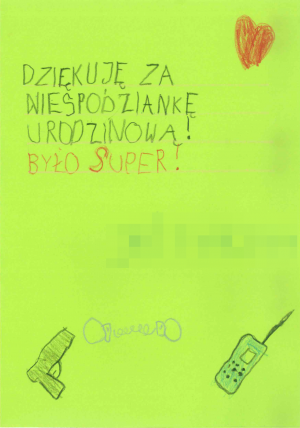 DZIĘKUJĘ ZA
NIESPODZIANKĘ
URODZINOWĄ!
BYŁO SUPER!